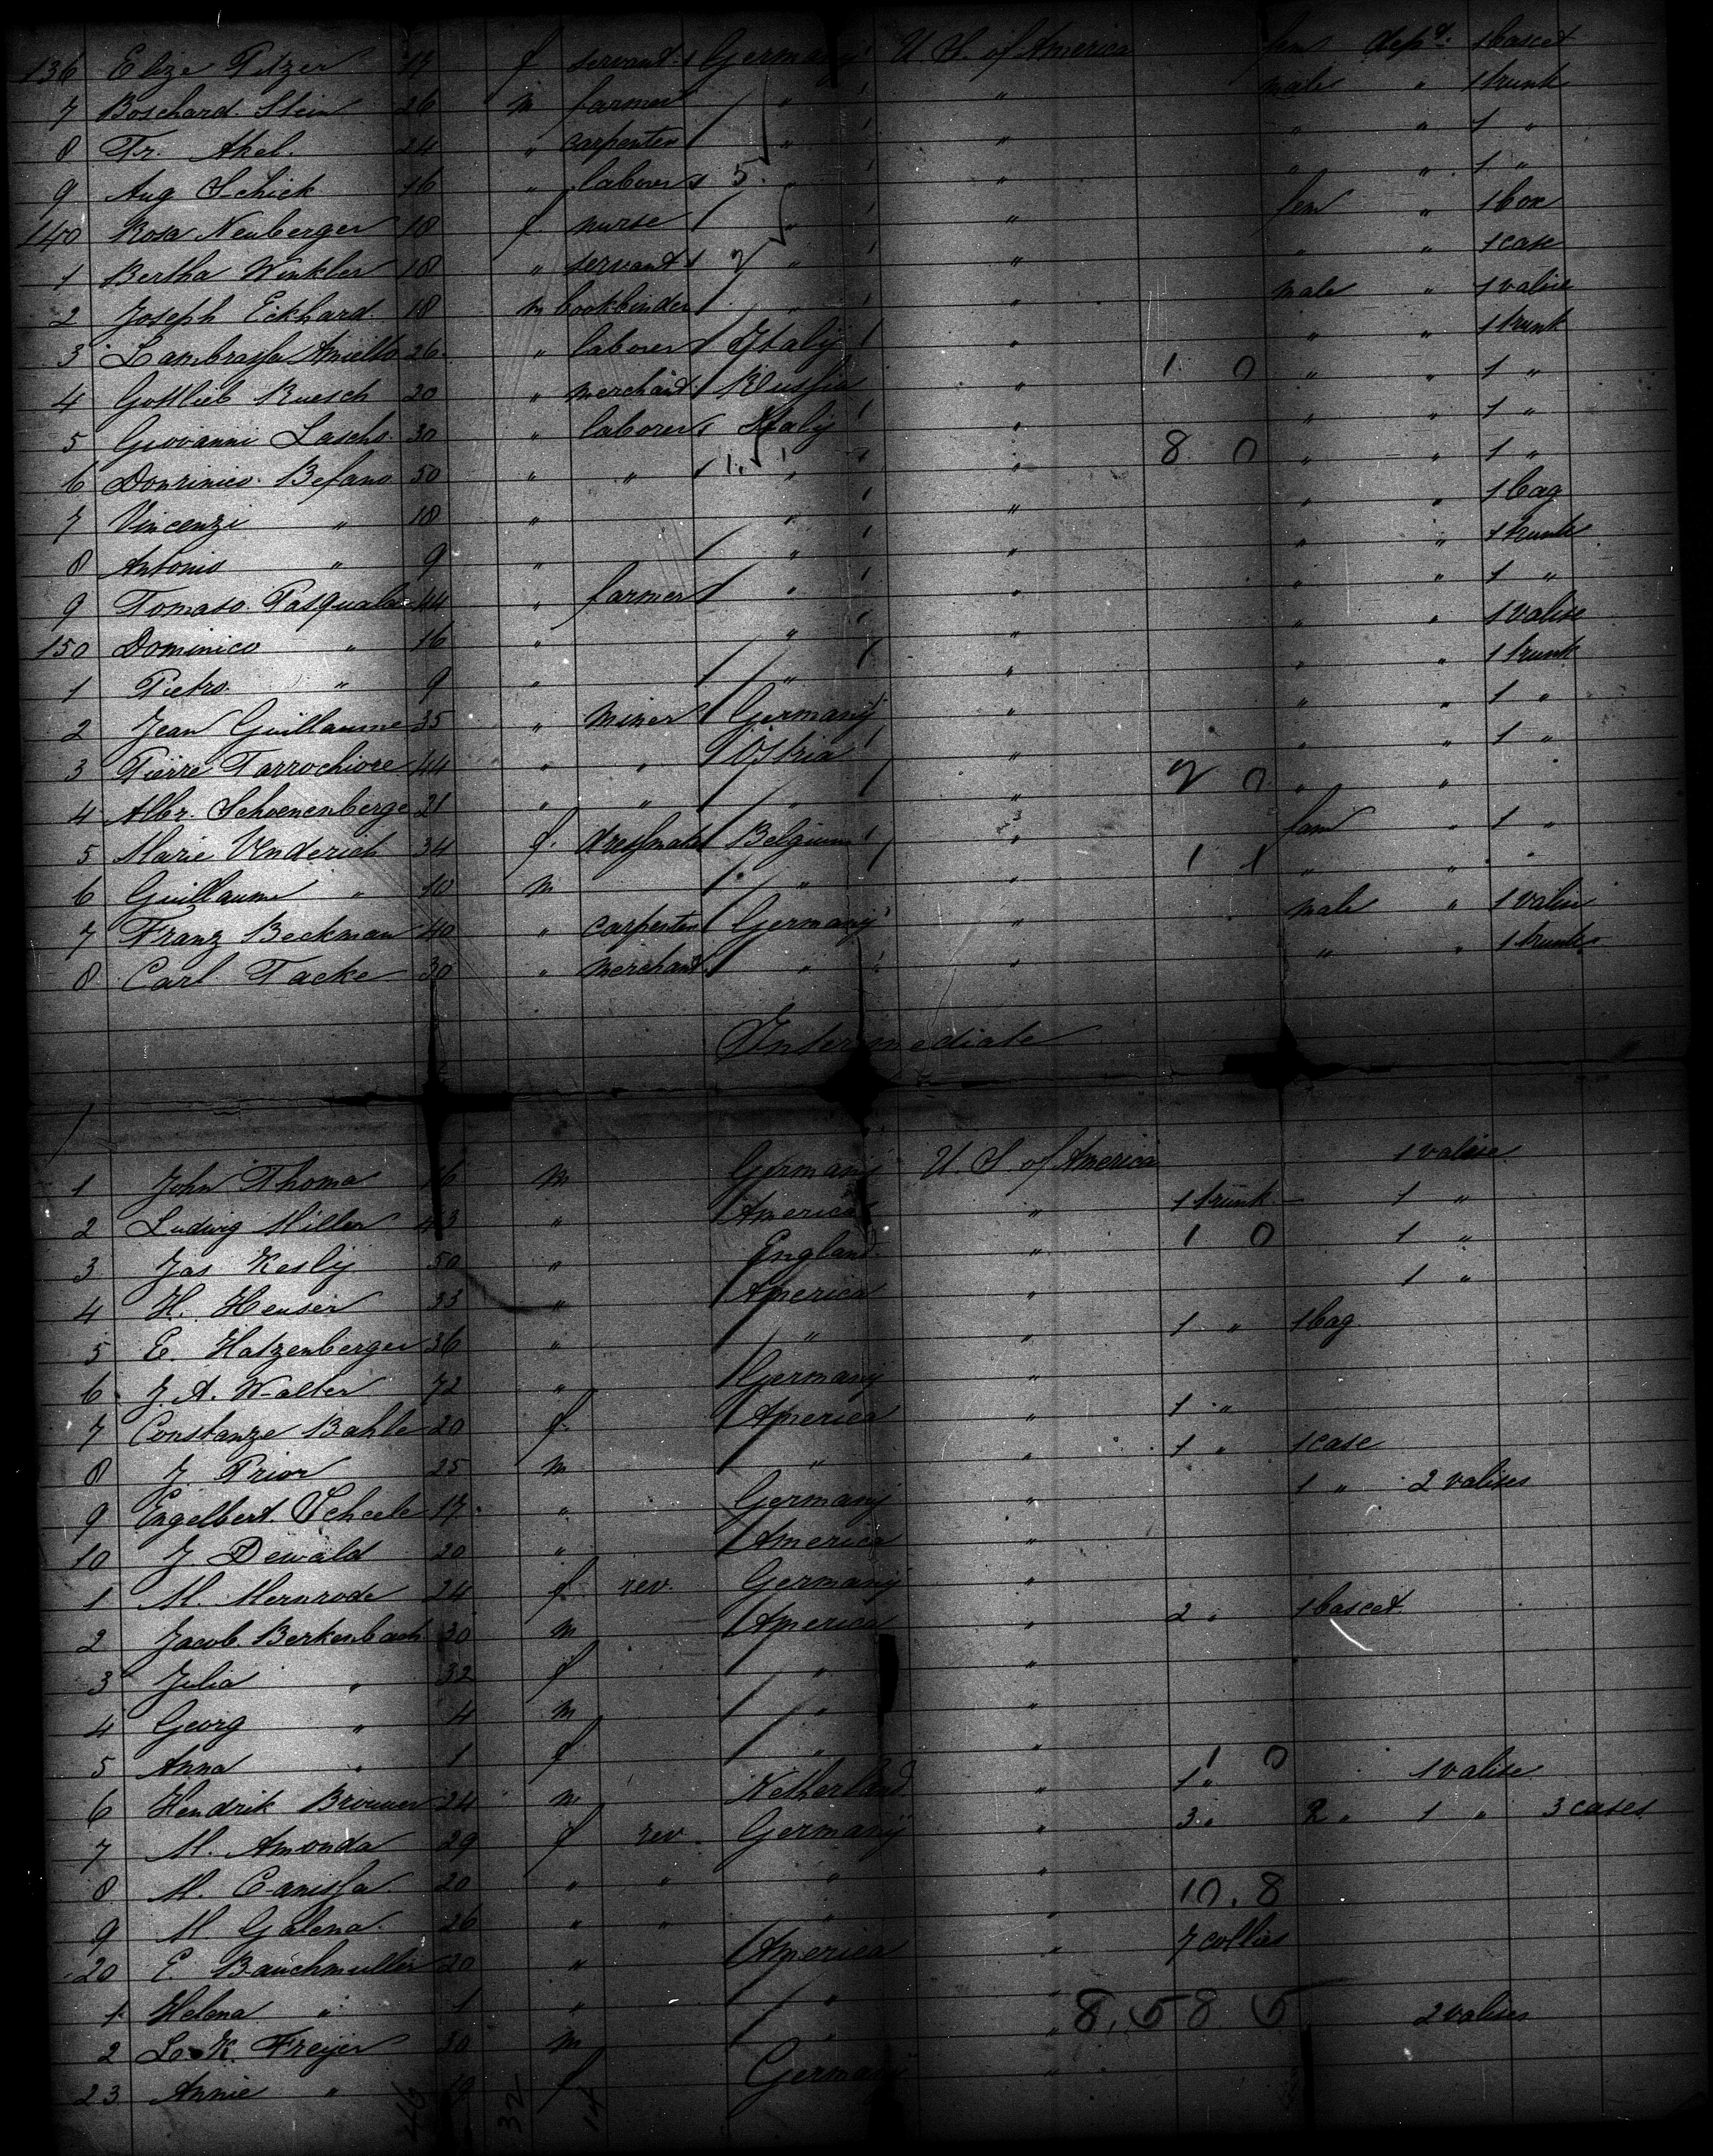 136 Elize Pitzer 17 f servant Germany U. S. of America fem dept. 1 bascet
7 Boschard Stein 26 m farmer " " male " 1 trunk
8 Fr. Abel. 24 " carpenter " " " " 1 "
9 Aug Schick 16 " laborer 5. " " " " 1 "
140 Rosa Neuberger 18 f. nurse " " fem " 1 box
1 Bertha Winkler 18 " servant 2 " " " " 1 case
2 Joseph Eckhard 18 m bookbinder " " male " 1 valise
3 Aniello 26 " laborer Italy " " " 1 trunk
4 Gottlieb Ruesch 20 " merchant Russia " 1 0 " " 1 "
5 Giovanni 30 " laborer Italy " " " 1 "
6 Dominico Befano 50 " " " " 8 0 " " 1 "
7 Vincenzi " 18 " " " " " 1 bag
8 Antonio " 9 " " " " " 1 trunk
9 Tomaso 44 " farmer " " " " 1 "
150 Dominico " 16 " " " " " 1 valise
1 Pietro " 9 " " " " " 1 trunk
2 Jean Guillaume 35 " miner Germany " " " 1 "
3 Pierre 44 " " " " " 1 "
4 Albr. Schoenenberge 21 " " " " 2 0 " "
5 Marie 34 f. Belgium " fam " 1 "
6 Guillaume " 10 m " " 1 1 " "
7 Franz Beckman 40 " carpenter Germany " male " 1 valise
8 Carl Tacke 30 " merchant " " " " 1 trunk
Intermediate
1 John Thoma 16 m Germany U. S. of America 1 valise
2 Ludwig Miller 43 " America " 1 trunk 1 "
3 Jas Kesly 50 " England " 1 0 1 "
4 H. Heuser 33 " America " 1 "
5 E. Hatzenberger 36 " " " 1 " 1 bag
6 J. A. Walter 72 " Germany "
7 Constanze Bahle 20 f. America " 1 "
8 J Prior 25 m " " 1 " 1 case
9 Engelbert Scheele 17 " Germany " 1 " 2 valises
10 J Dewald 20 " America "
1 M. 24 f rev. Germany "
2 Jacob Berkenbach 30 m America " 2 " 1 bascet
3 Julia " 32 f " "
4 Georg " 4 m " "
5 Anna " 1 f " "
6 Hendrik Brouwer 24 m Netherland " 1 0 1 " 1 valise
7 M. Amonda 29 f rev. Germany " 3 " 2 " 1 " 3 cases
8 M. Canisſa 20 " " " " 10. 8
9 M Galena 26 " " " "
20 E. Bauchmuller 20 " America " 7 collies
1 Helena " 1 " " "
2 Freyer 30 m " " 8. 5 8. 5 2 valises
23 Annie " 19 f Germany "
46 32 14